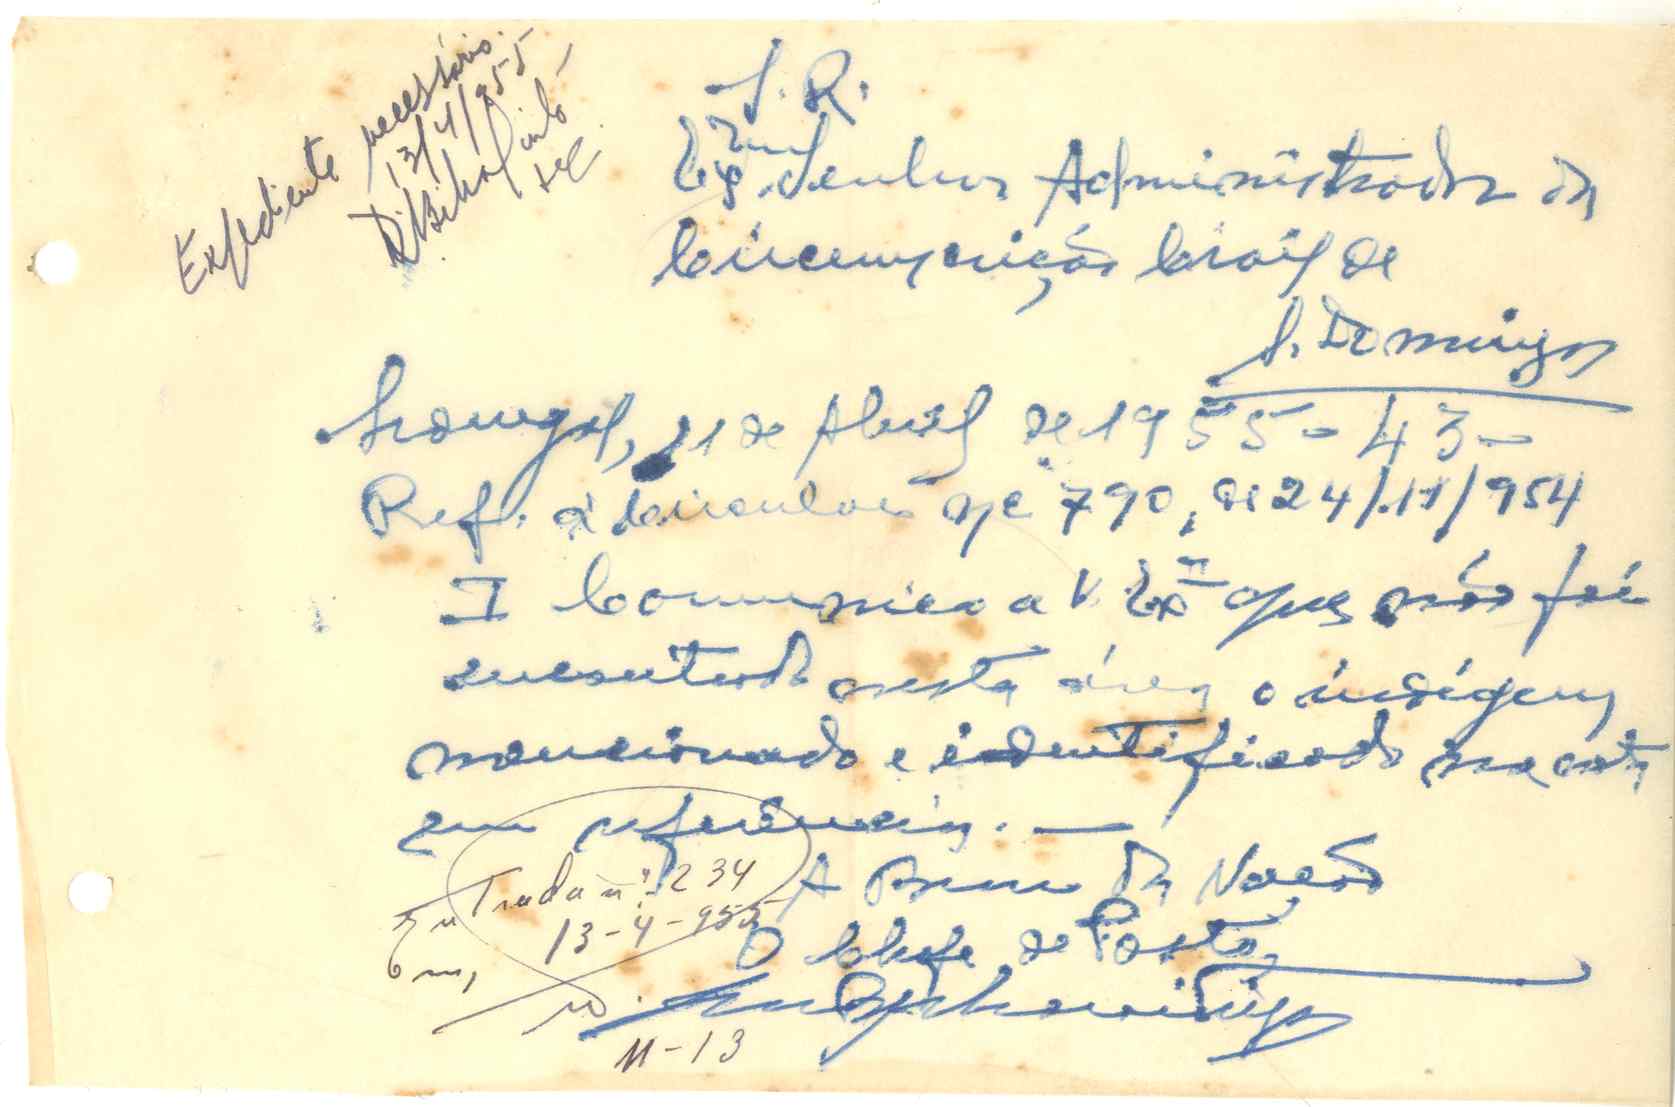 Expediente necessário.
13/4/955
S. R.
Exmo. Senhor Administrador da
Circunscrição Civil de
S. Domingos
11 de Abril de 1955 - 43 -
Ref. à Circular nº 790, de 24/11/954
I Comunico a V. Exª que não foi
encontrado nesta área o indígena
mencionado e identificado na nota
em referência. —
A Bem da Nação
O Chefe de Posto,
Entrada nº 234
Em, 13-4-955
M-13